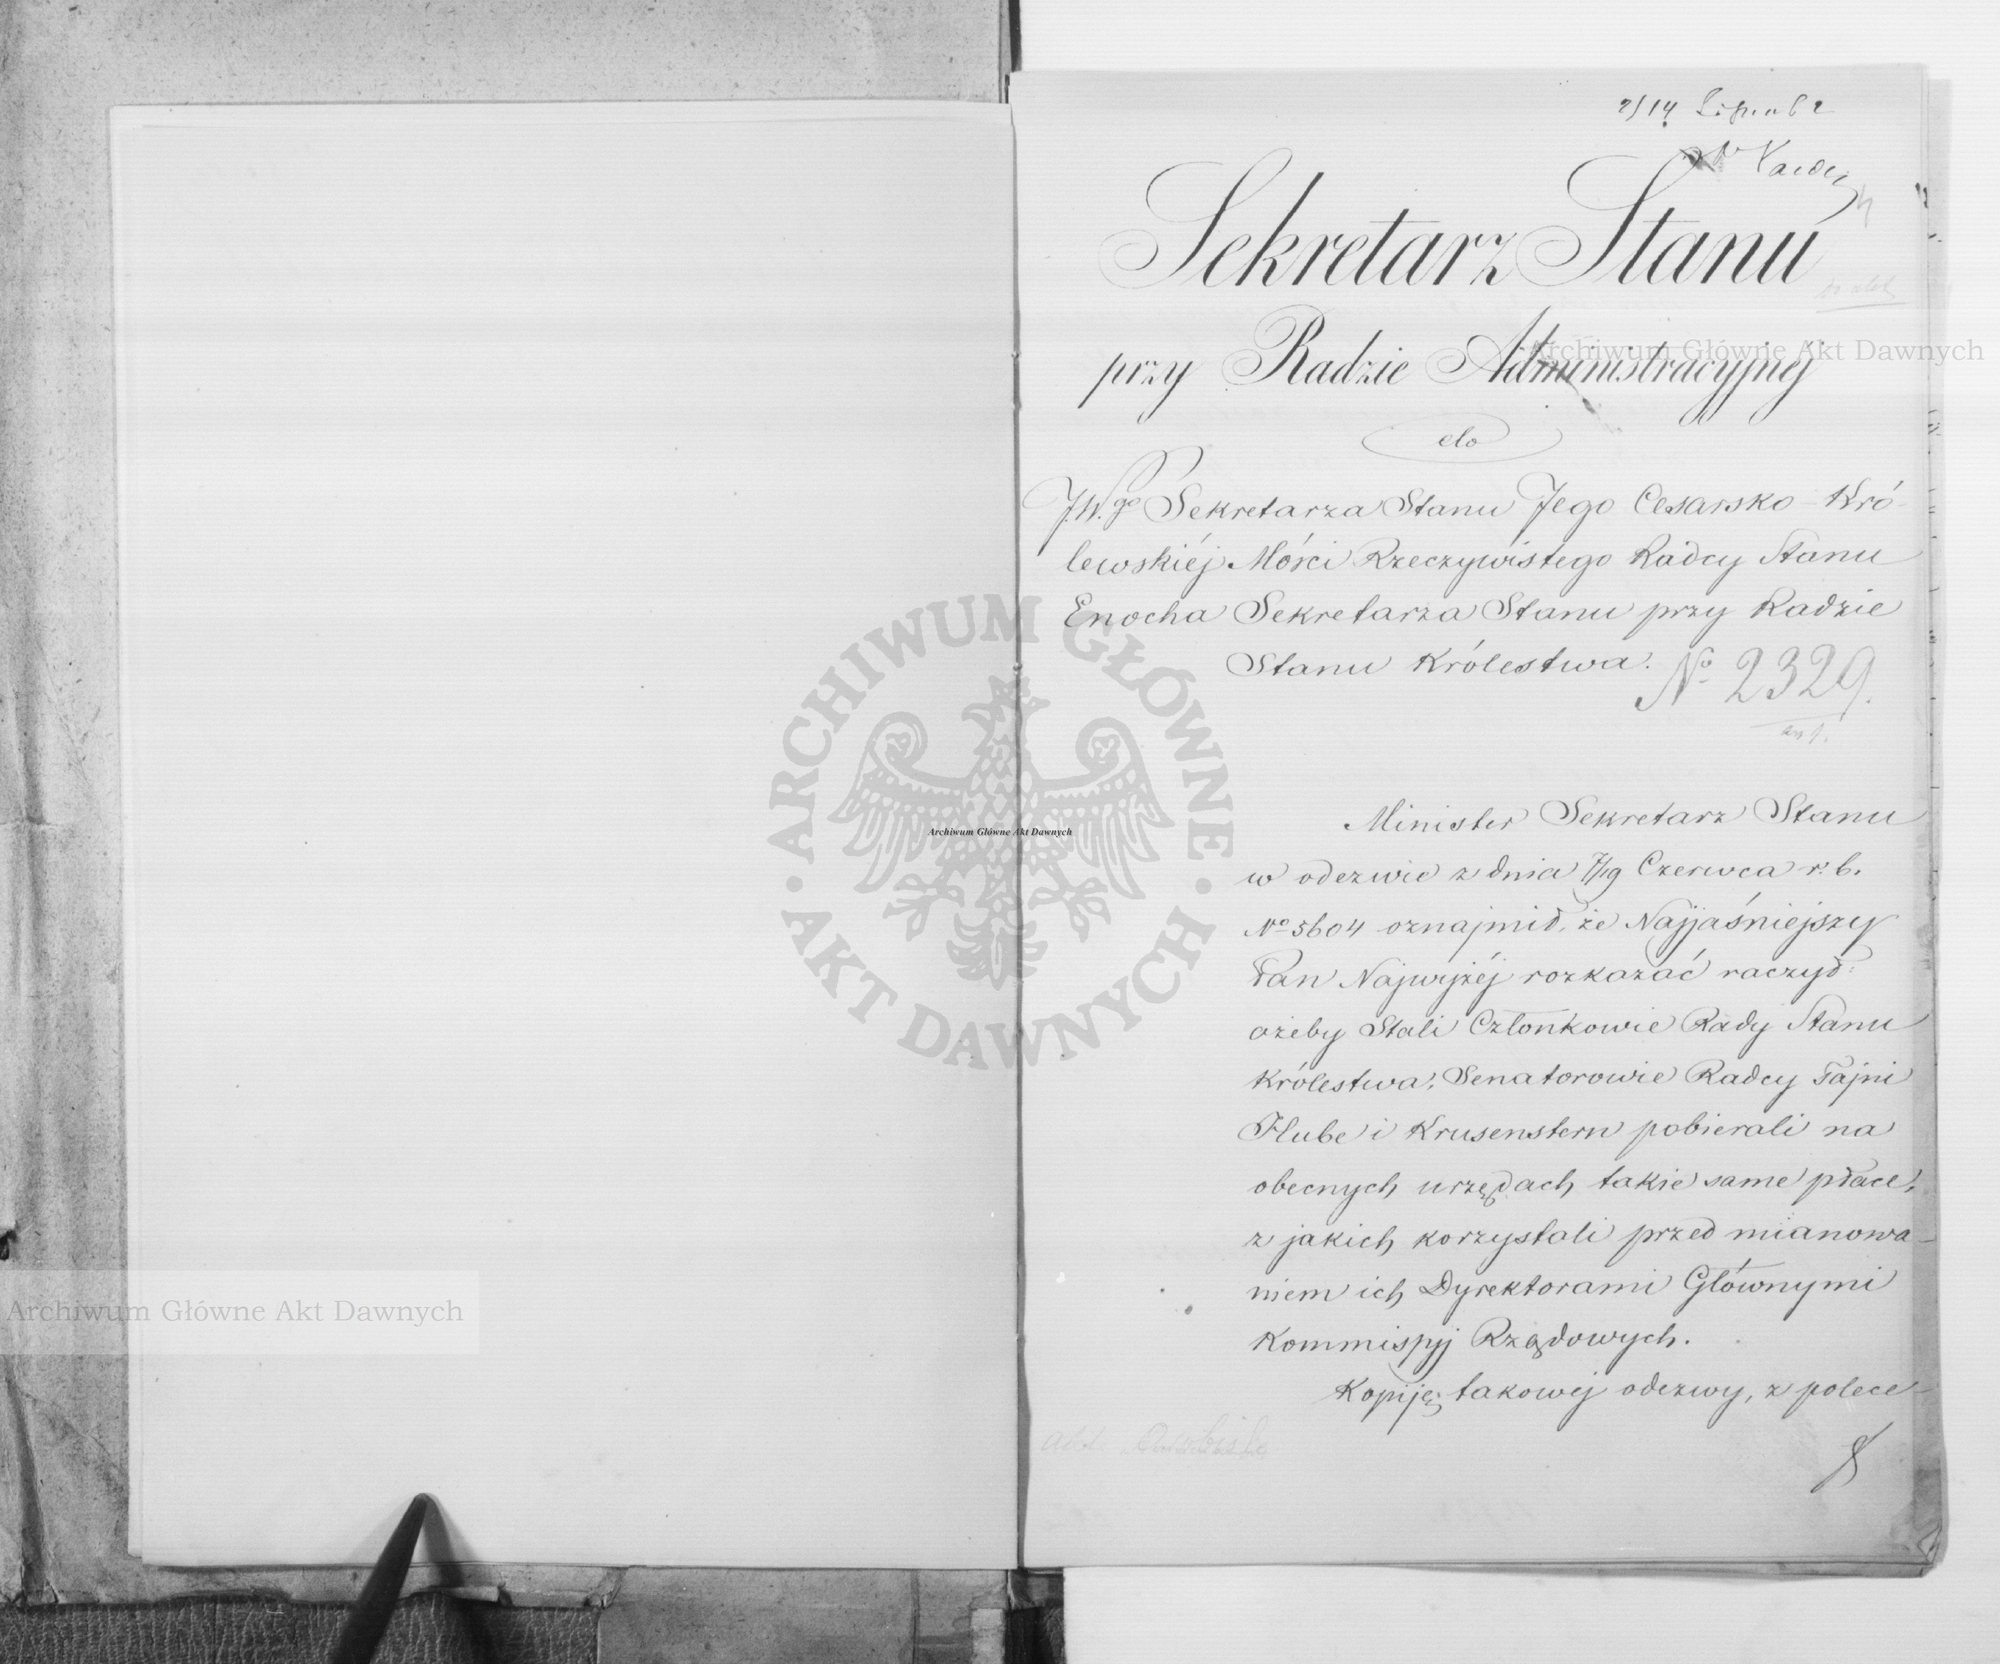 2/14 Lipca 62
Sekretarz Stanu
przy Radzie Administracyjnéj
do
J.W.go Sekretarza Stanu Jego Cesarsko-Kró-
lewskiéj Mości Rzeczywistego Radcy Stanu
Enocha Sekretarza Stanu przy Radzie
Stanu Królestwa.
No 2329.
Minister Sekretarz Stanu
w odezwie z dnia 7/19 Czerwca r. b.
No 5604 oznajmił, że Najjaśniejszy
Pan Najwyżéj rozkazać raczył:
ażeby Stali Członkowie Rady Stanu
Królestwa, Senatorowie Radcy Tajni
Hube i Krusenstern pobierali na
obecnych urzędach takie same płace,
z jakich korzystali przed mianowa-
niem ich Dyrektorami Głównymi
Kommissyj Rządowych.
Kopiję takowej odezwy, z polece-
Archiwum Główne Akt Dawnych
Archiwum Główne Akt Dawnych
Archiwum Główne Akt Dawnych
ARCHIWUM GŁÓWNE AKT DAWNYCH